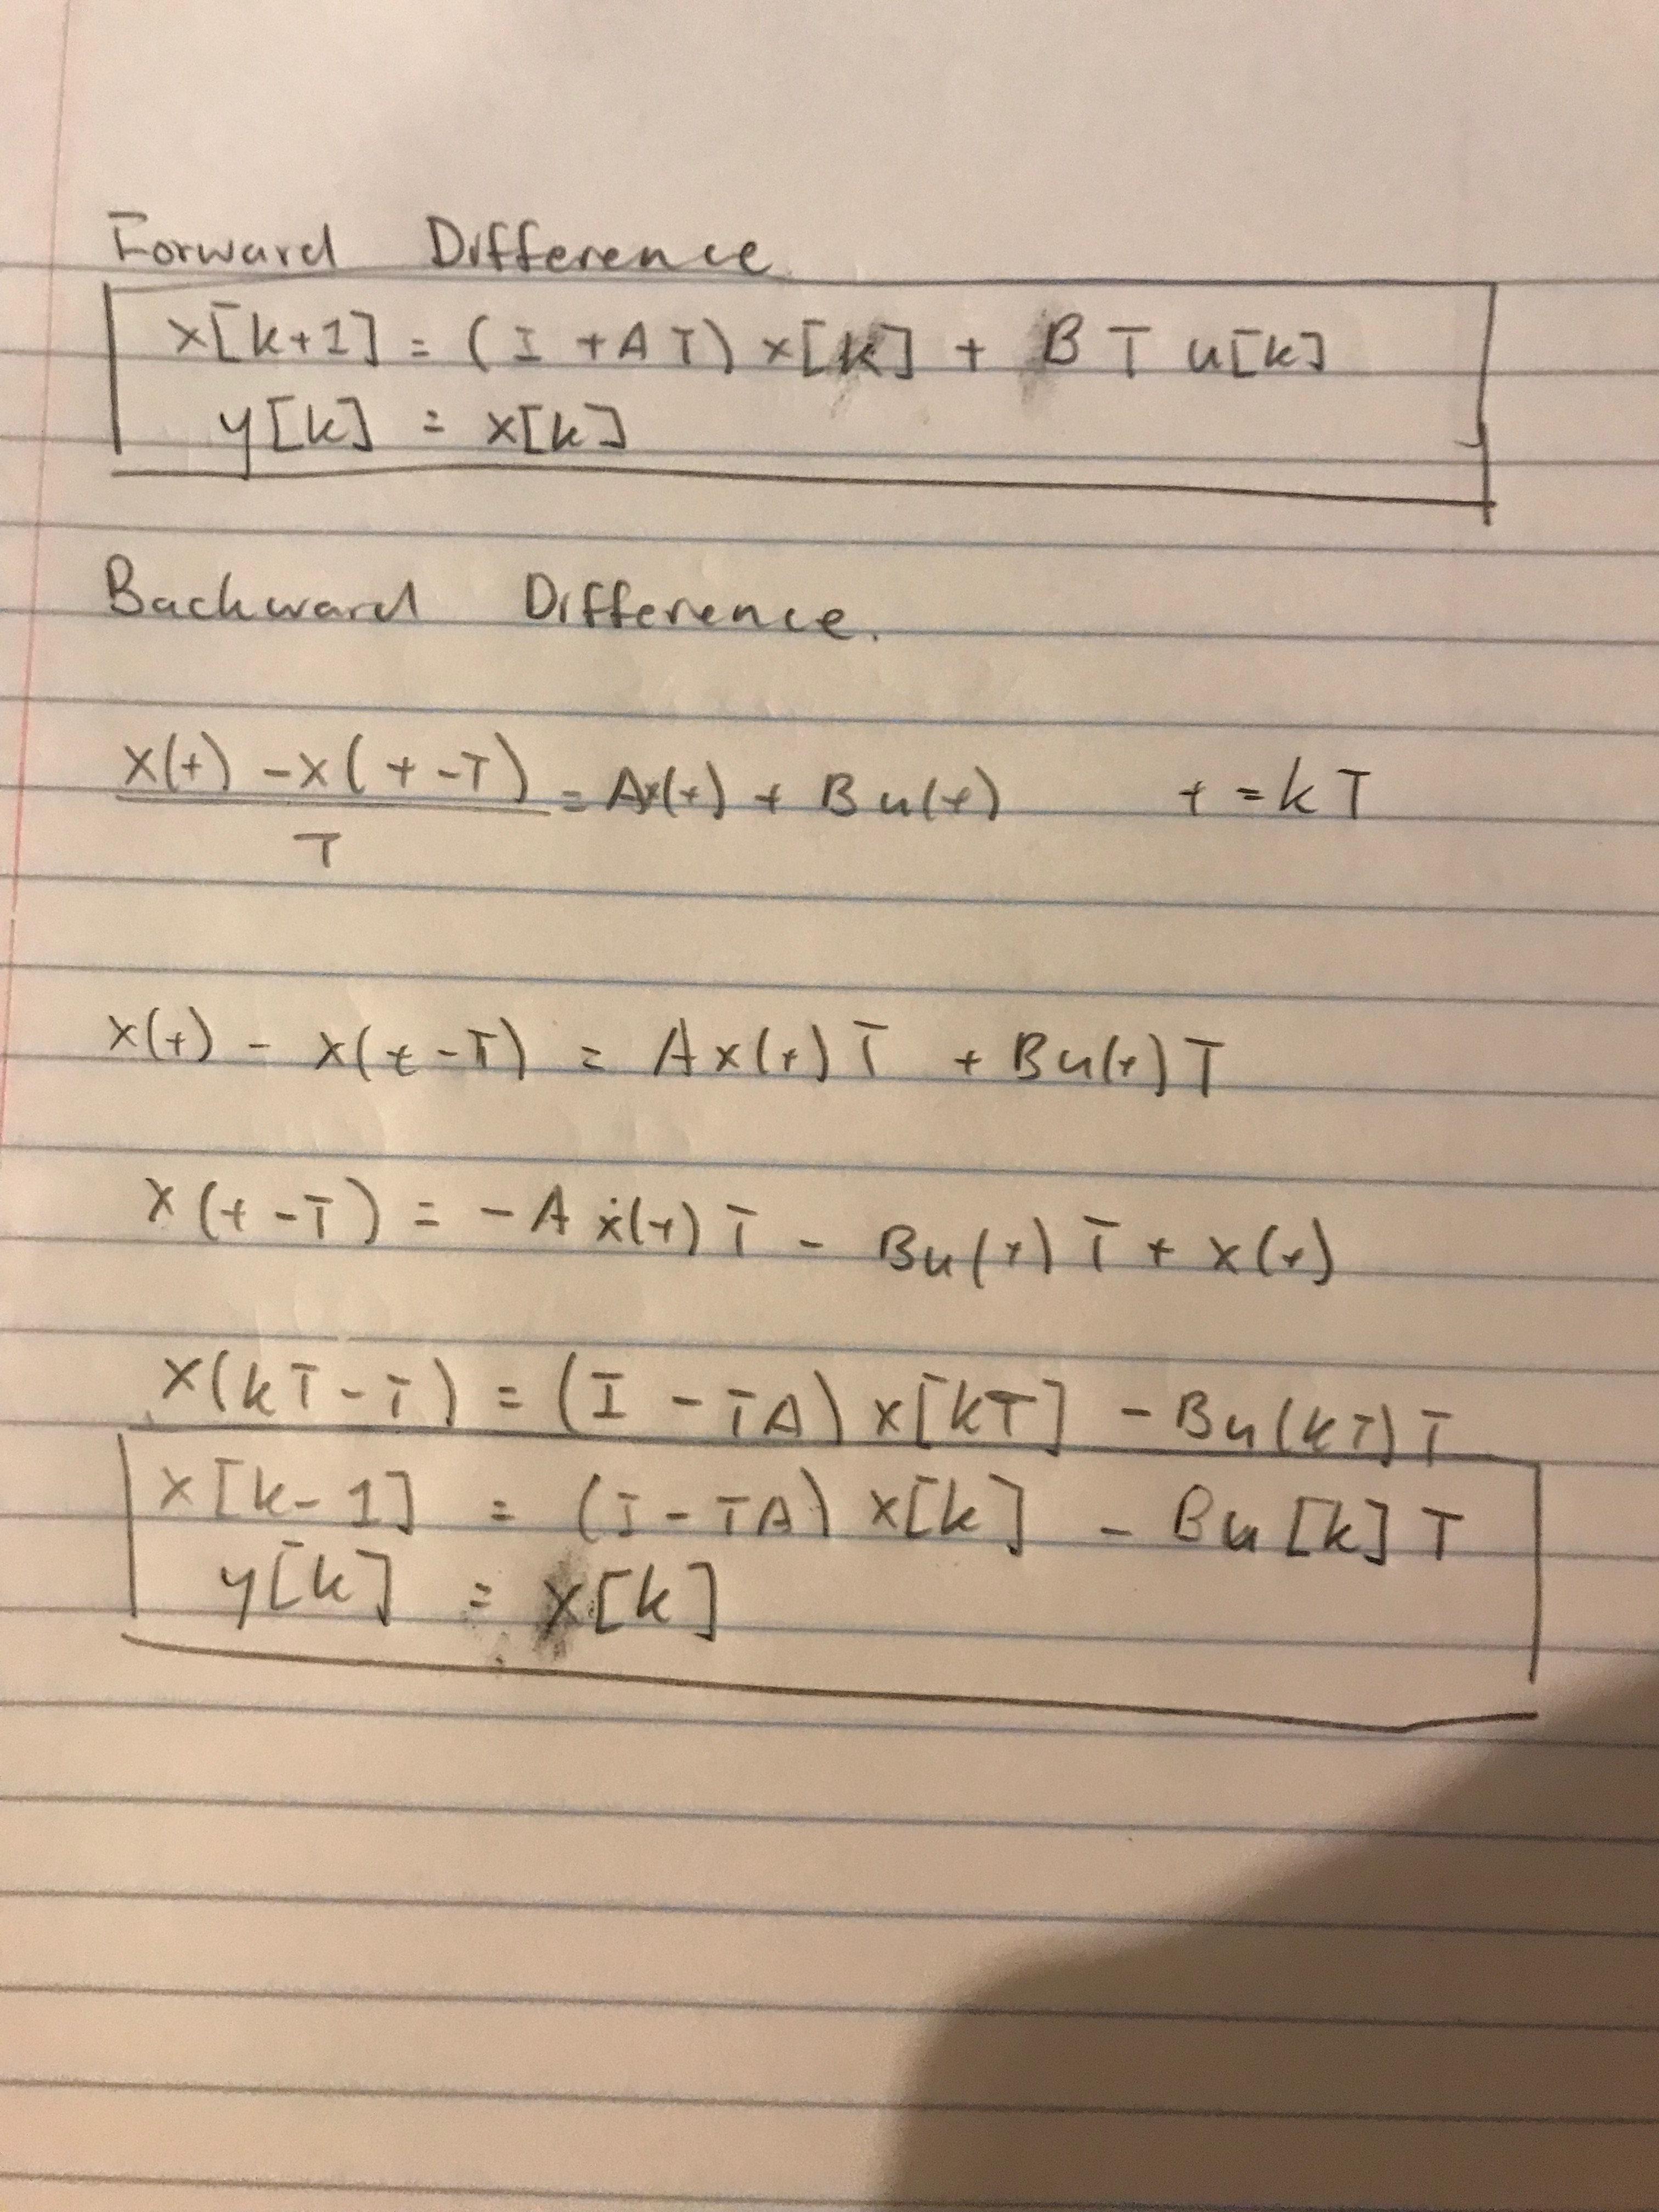 Forward Difference
x[k+1] = (I + A T) x[k] + B T u[k]
y[k] = x[k]
Backward Difference.
x(t) - x(t - T) / T = Ax(t) + B u(t) t = k T
x(t) - x(t - T) = A x(t) T + B u(t) T
x(t - T) = - A x(t) T - B u(t) T + x(t)
x(kT - T) = (I - TA) x[kT] - B u(kT) T
x[k - 1] = (I - TA) x[k] - B u[k] T
y[k] = x[k]